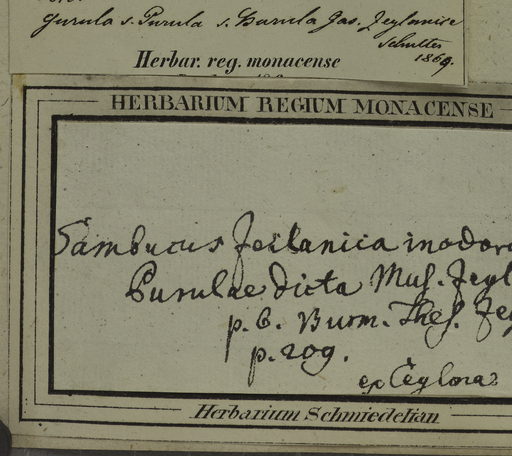 Gurula s. Purula s. Burula Jas. Zeylanice
Schultes
1869.
Herbar. reg. monacense
HERBARIUM REGIUM MONACENSE
Sambucus Zeilanica inodora
Purulae dicta Mus. Zeyl
p. 6. Burm. Thes. Zey
p. 209.
ex Ceylona
Herbarium Schmiedelian